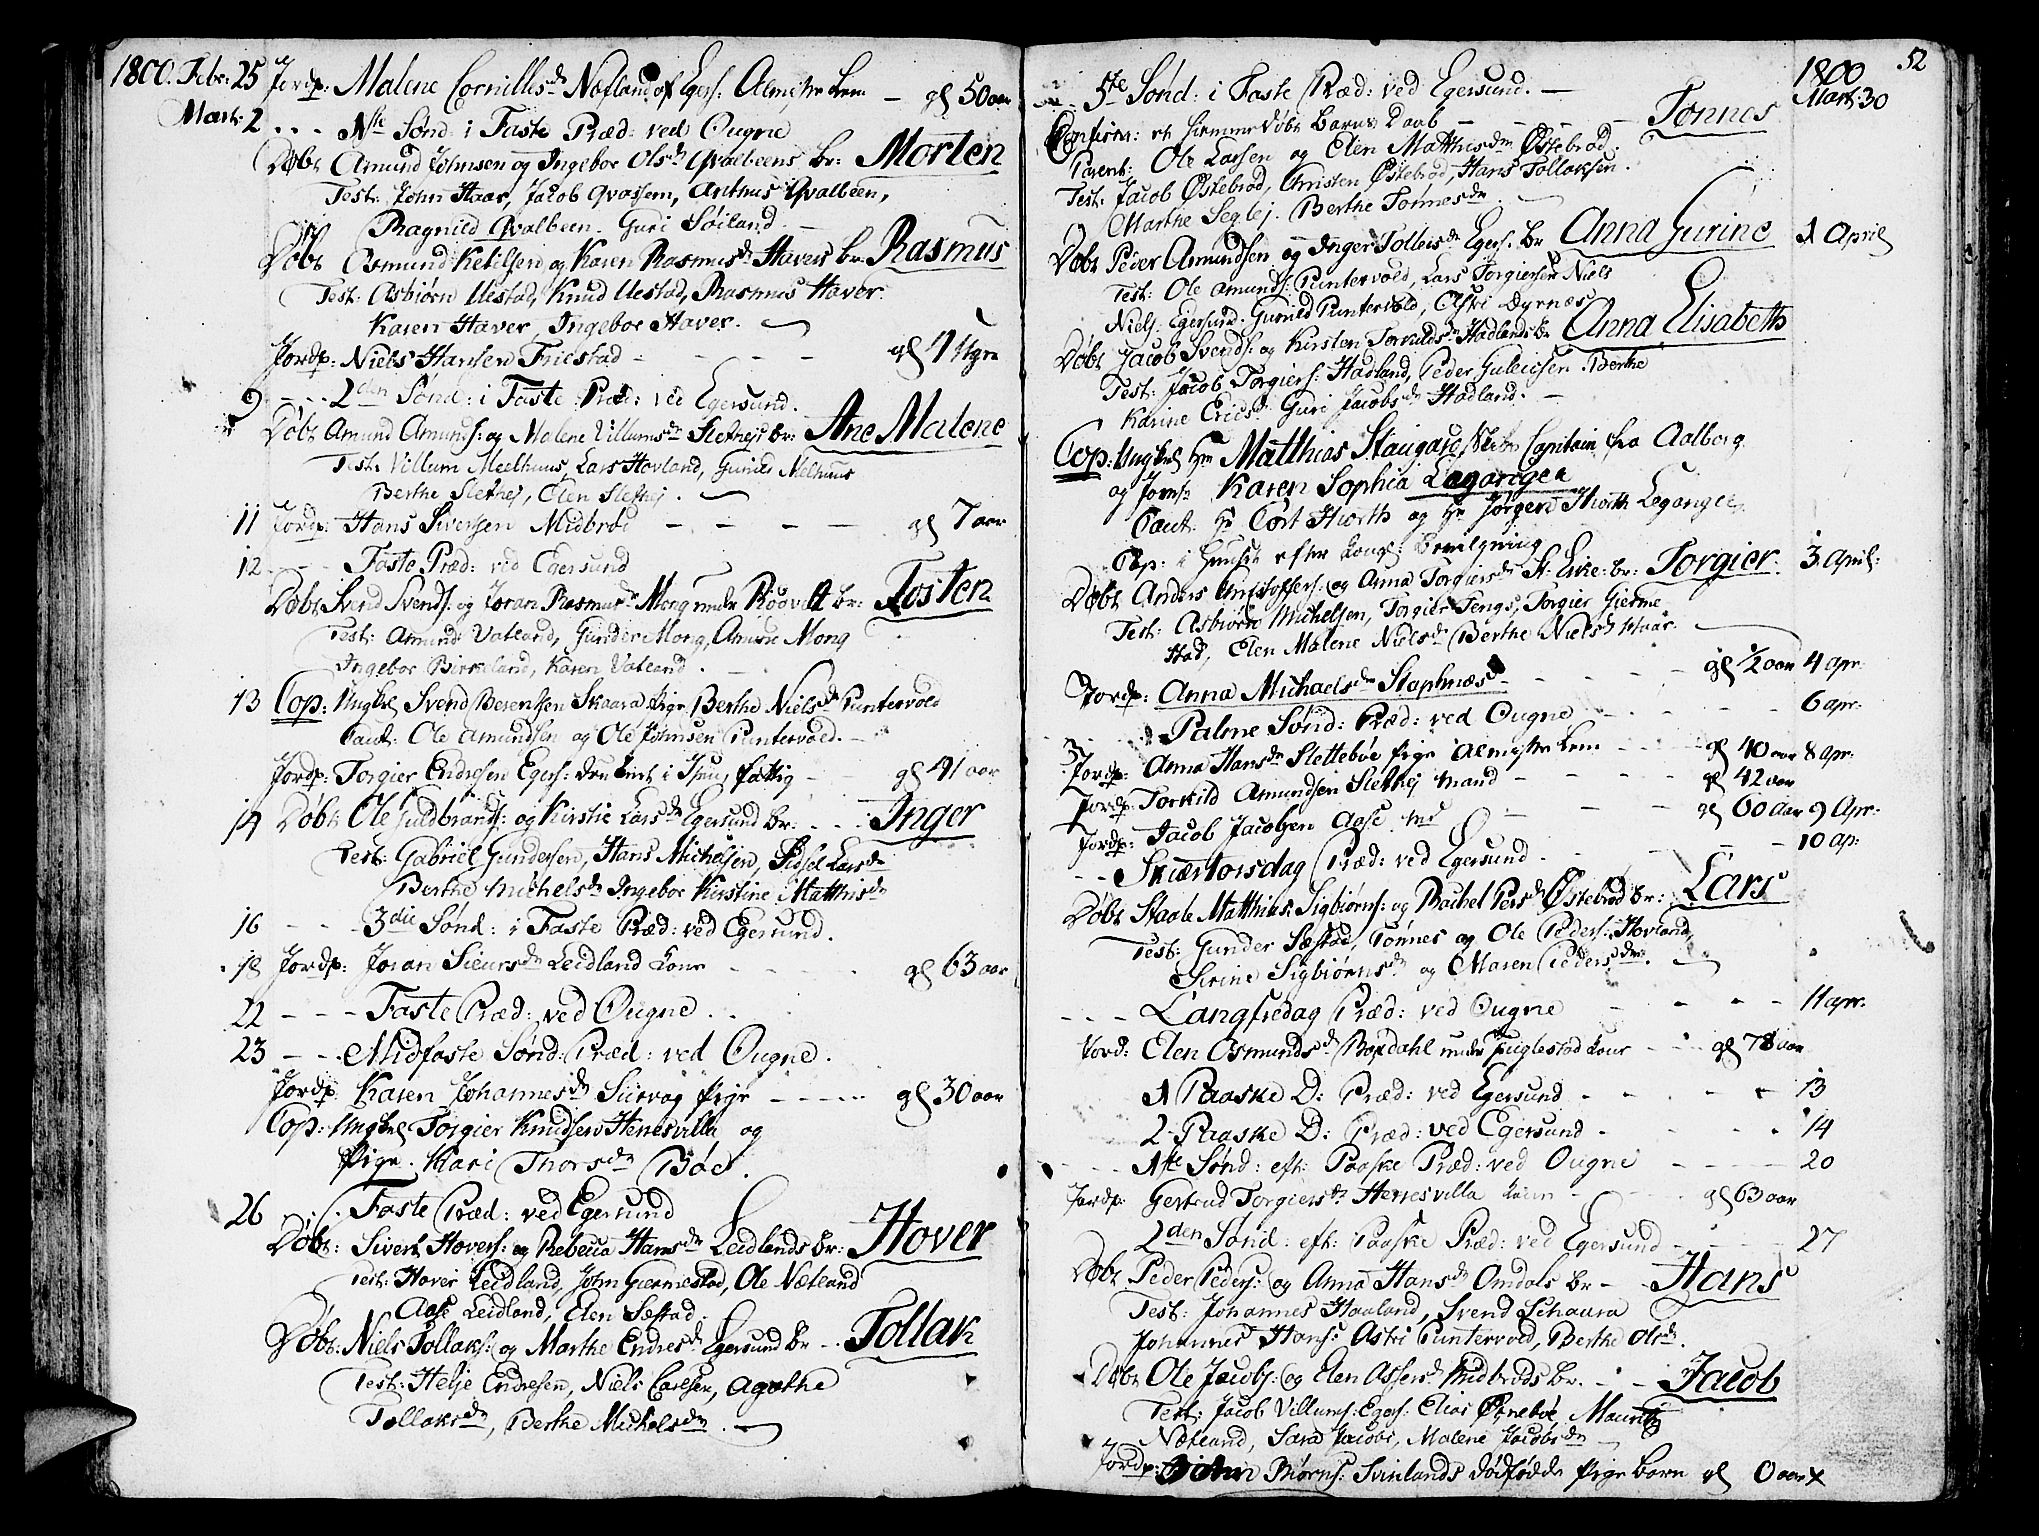 1800. Febr: 25 Jordp: Malene Cornillesdr Nefland af Egers: Almisse Lem — gl 50 aar
Mart: 2 - - - 1ste Sønd: i Faste Præd: ved Ougne
Døbt Amund Johnsen og Ingebor Olsdr Qvalbeens br: Morten
Test: John Haar, Jacob Qvassem, Antmus Qvalbeen,
Ragnild Qvalbeen. Guri Søiland
Døbt Osmund Ketilsen og Karen Rasmusdr Havers br: Rasmus
Test: Asbiørn Uestad, Knud Uestad, Rasmus Haver
Karen Haver, Ingebor Haver.
Jordp: Niels Hansen Friestad - - - - gl 7 Ugr
9 - - - 2den Sønd: i Faste Præd: ved Egersund.
Døbt Amund Amunds: og Malene Villumsdr Sletheis br: Ane Malene
Test: Villum Meelhuus, Lars Hovland, Guruld Melhuus
Berthe Slethej, Elen Slethej.
11 Jordp: Hans Sivertsen Midbrød - - - - gl 7 aar
12 - - - Faste Præd: ved Egersund
Døbt Svend Svends: og Joran Rasmusdr Mong br: Tosten
Test: Amund Vatland, Gunder Mong, Amund Mong
Ingebor Birkeland, Karen Vatland
13 Cop: Ungkl Svend Berentsen Skaara Pige Berthe Nielsdr Puntervold
Caut: Ole Amundsen og Ole Johnsen Puntervold.
Jordp: Torgier Endresen Egers: fattig - - gl 41 aar
14 Døbt Ole Guldbrands: og Kirstie Larsdr Egersund br: - - - Inger
Test: Gabriel Gundersen, Hans Michelsen, Sidsel Larsdr
Berthe Michelsdr Ingebor Kirstine Matthisdr
16 - - - 3die Sønd: i Faste Præd: ved Egersund.
18 Jordp: Joran Sieursdr Leidland Kone - - - - gl 63 aar
22 - - - Faste Præd: ved Ougne.
23 - - - Midfaste Sønd: Præd: ved Ougne.
Jordp: Karen Johannesdr Sirevog Pige - - - - gl 30 aar
Cop: Ungkrl Torgier Knudsen Herresvilla og
Pige Kari Thorsdr Bøe.
26 - - - Faste Præd: ved Egersund
Døbt: Sivert Hovers: og Rebecca Hansdr Leidlands br: Hover
Test: Hover Leidland, John Giermestad, Ole Nætland
Aase Leidland, Elen Sestad.
Døbt: Niels Tollaks: og Marthe Endresdr Egersund br - - Tollak
Test: Helje Endresen, Niels Carlsen, Agathe
Tollaksdr, Berthe Michelsdr.
52
1800
5te Sønd: i Faste Præd: ved Egersund. — Mart: 30
Confirm: et hiemmedøbt Barns Daab - - - - Tønnes
Parent: Ole Larsen og Elen Matthisdr Østebrød.
Test: Jacob Østebrød, Christen Østebrød, Hans Tollaksen.
Marthe Seglej. Berthe Tønnesdr
Døbt Peder Amundsen og Inger Tolleisdr Egers. br Anna Gurine 1 April
Test: Ole Amunds: Puntervold, Lars Torgiersen Niels
Niels: Egersund. Guruld Puntervold, Astri Dyrnæs
Døbt Jacob Svends: og Kirsten Torkildsdr Hadlands br Anna Elisabeth
Test: Jacob Torgiers: Hadland, Peder Guleicsen. Berthe
Karine Ericsdr Guri Jacobsdr Hadland. —
Cop: Ungkrl Hr Matthias Staugard, Capitain fra Aalborg
og Jomfr Karen Sophia Legangen
Caut: Hr Cort Hiorth og Hr Jørgen Hiorth Legangen
Cop: i Huuset efter Kongl: Bevilgning
Døbt Anders Christophers: og Anna Torgiersdr St: Eike: br: Torgier. 3 April:
Test: Asbiørn Michelsen, Torgier Tengs, Torgier Gierme
stad, Elen Malene Nielsdr Berthe Nielsdr Haar.
Jordp: Anna Michaelsdr Staplnæs - - - - gl 1/2 aar 4 apr:
Palme Sønd: Præd: ved Ougne - - - - 6 apr:
Jordp: Anna Hansdr Slettebøe Pige Almisse Lem - - - - gl 40 aar 8 apr:
Jordp: Torkild Amundsen Slethej Mand - - - - gl 42 aar
Jordp: Jacob Jacobsen Aase - - - gl 60 aar 9 Apr:
Skiærtorsdag Præd: ved Egersund - - - - 10 ap:
Døbt Staale Matthias Sigbiørns: og Rachel Persdr Østebrød br: Lars
Test: Gunder Sæstad, Tønnes og Ole Peders: Hovland,
Sirine Sigbiørnsdr og Maren Pedersdr.
- - - Langfredag Præd: ved Ougne - - - - 11 apr.
Jord: Elen Osmundsdr Bøxdahl under Fuglestad Kone - - - gl 78 aar
1 Paaske D: Præd: ved Egersund - - - - 13
2 Paaske D: Præd: ved Egersund - - - - 14
- - - 1ste Sønd: eft: Paaske Præd: ved Ougne - - - - 20
Jordp: Gertrud Torgiersdr Herresvilla Kone - - - - gl 63 aar
2den Sønd: eft: Paaske Præd: ved Egersund - - - - 27
Døbt Peder Peders: og Anna Hansdr Omdals br - - Hans
Test: Johannes Haaland, Svend Schaara
Johannes Hans: Astri Puntervold, Berthe Olsdr.
Døbt Ole Jacobs: og Elen Assersdr Midbrøds br. - - Jacob
Test: Jacob Villums: Egers: Elias Ørnebøe, Mauritz
Nætland, Sara Jacobs, Malene Jacobsdr
Jordp: Biørns: Svinlands dødfødde Pige barn gl 0 aar